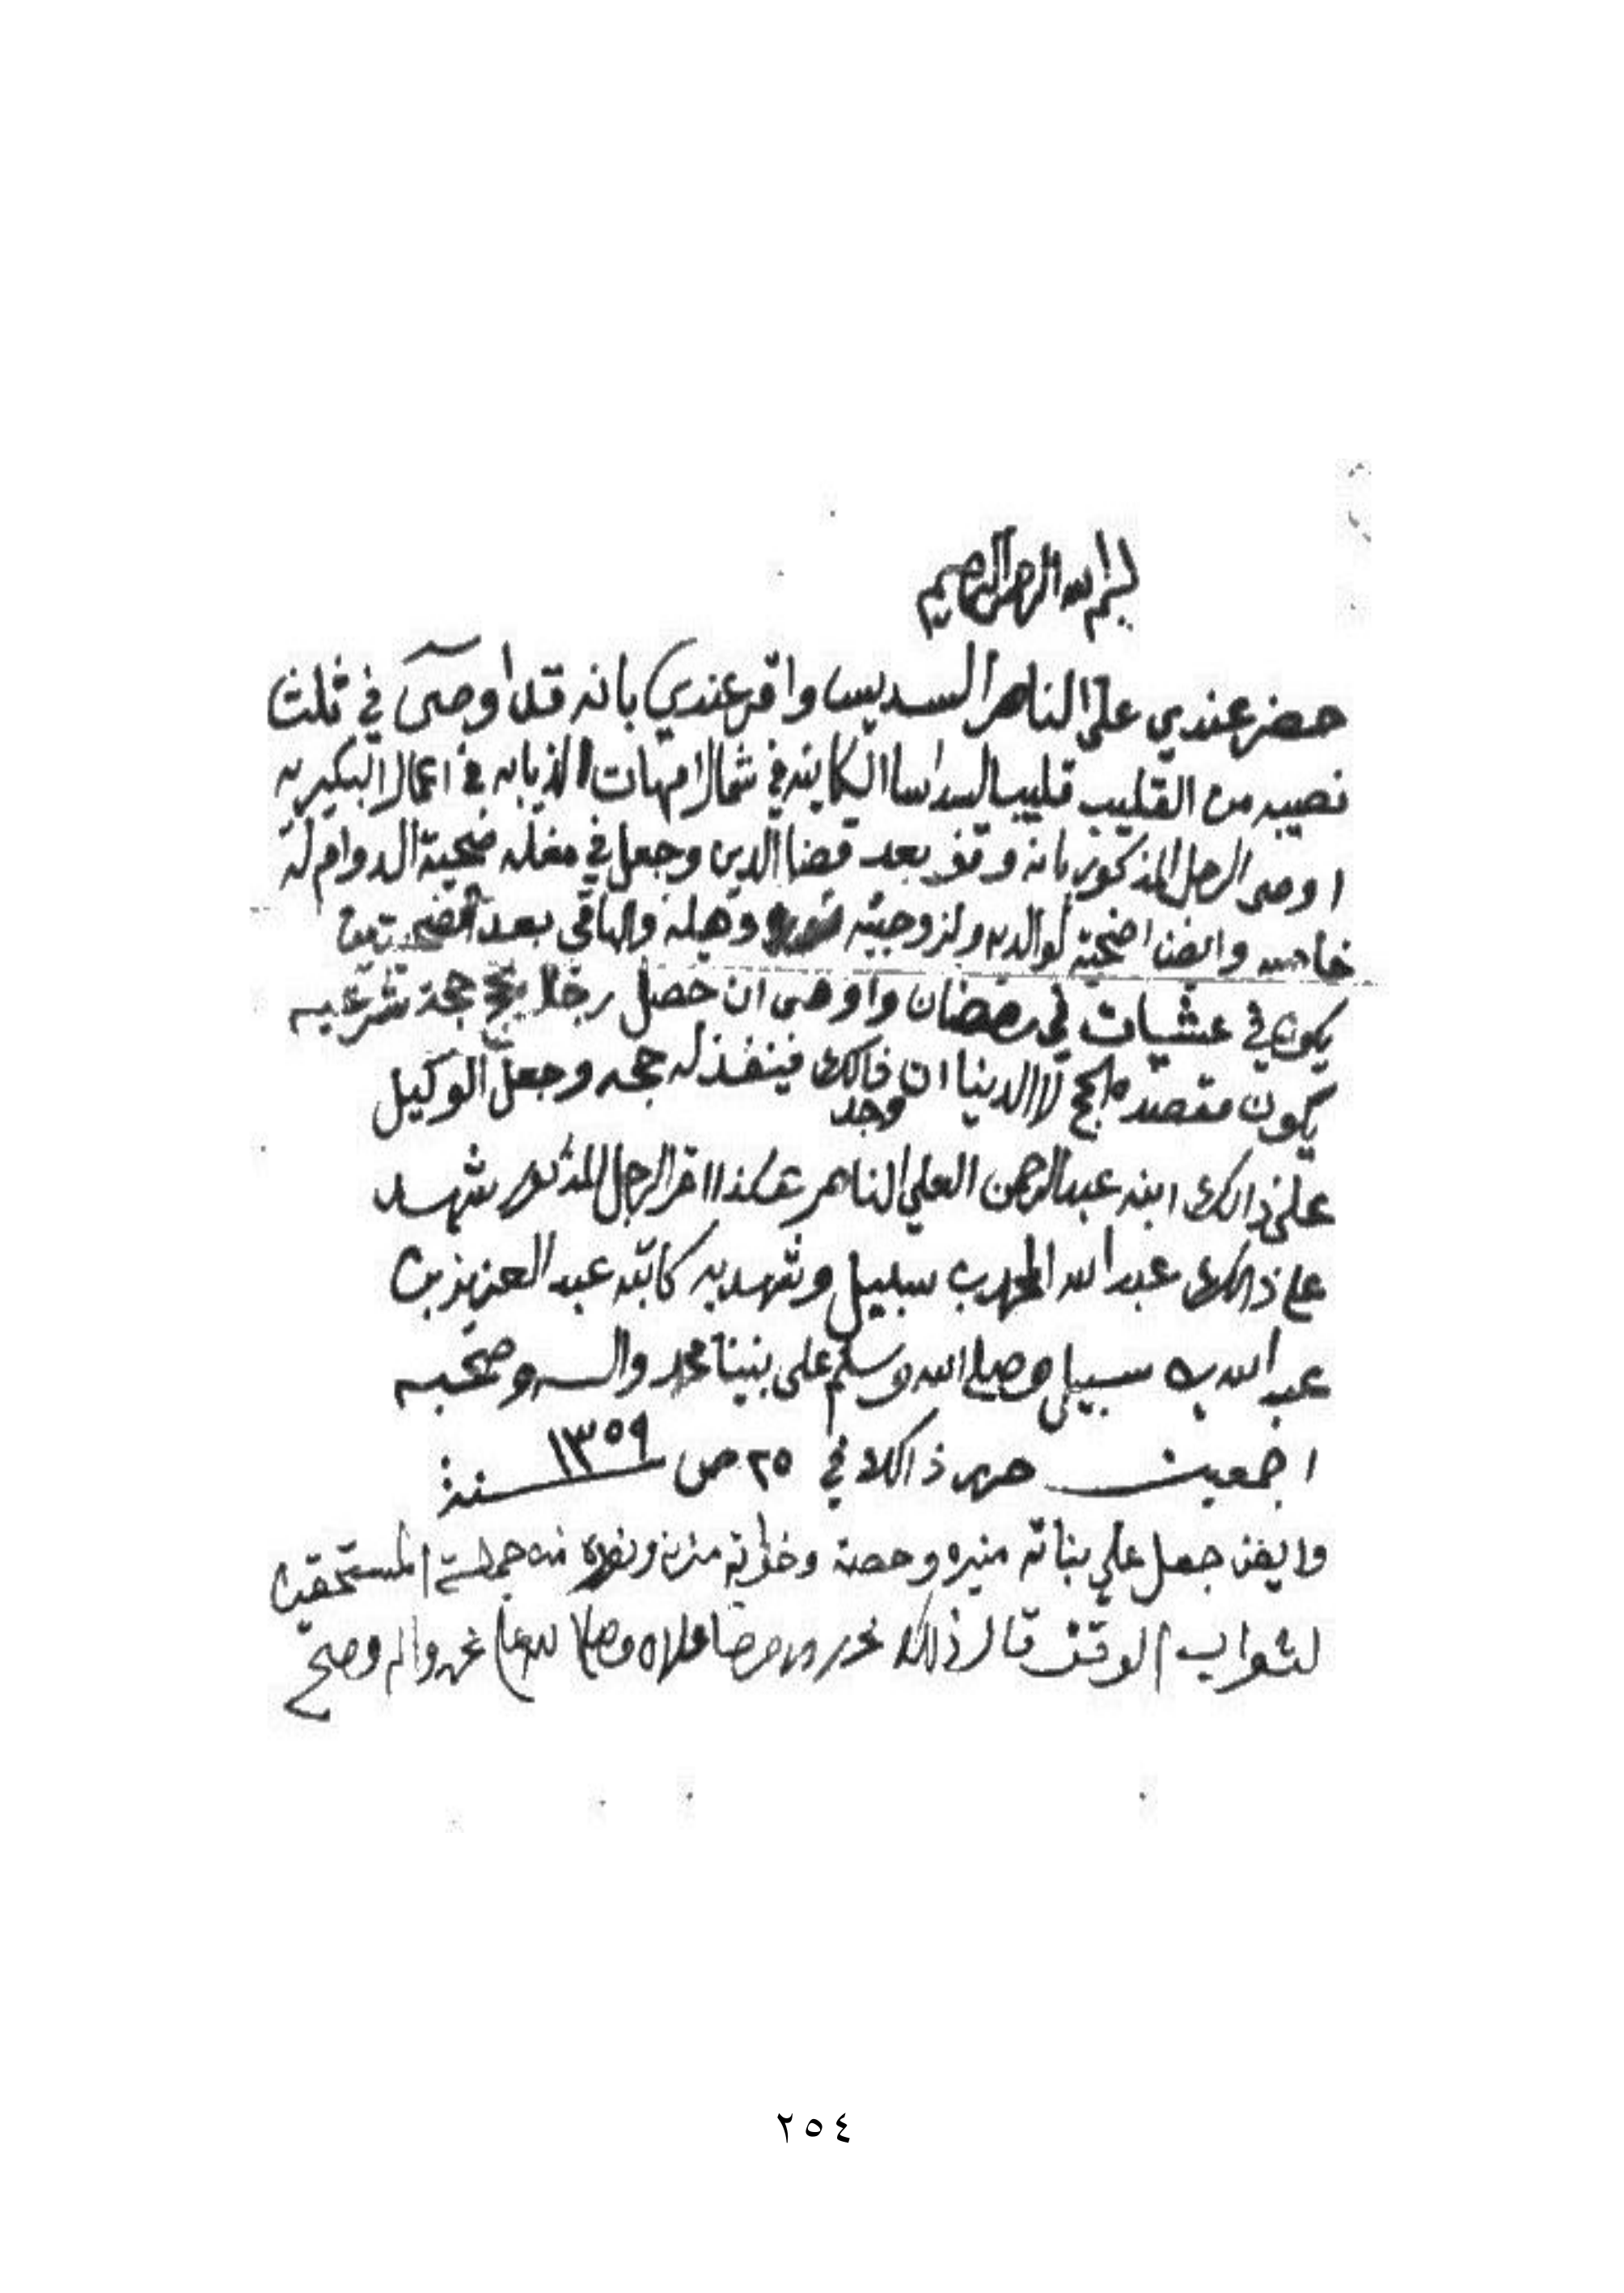 بسم الله الرحمن الرحيم
حضر عندي علي الناصر السديس واقر عندي بانه قد اوصى في ثلث
نصيبه من القليب قليب السداسا الكاينه في شمال امهات الذيابه في اعمال البكيريه
اوصى الرجل المذكور بانه وقف بعد قضا الدين وجعل في مغله ضحية الدوام له
خاصه وايضا اضحية لوالديه ولزوجيته وهيله والباقي بعد الضحيتين
يكون في عشيات في رمضان واوصى ان حصل رجلا يحج حجة شرعيه
يكون مقصده الحج لا الدينا ان وجد ذالك فينفذ له حجه وجعل الوكيل
على ذالك ابنه عبدالرحمن العلي الناصر هكذا اقر الرجل المذكور شهد
على ذالك عبد الله المحمد بن سبيل وشهد به كاتبه عبد العزيز بن
عبد الله بن سبيل وصلى الله وسلم على نبينا محمد واله وصحبه
اجمعين حرر ذالك في ٢٥ ص ١٣٥٩ سنة
وايضن جعل علي بناته منيره وحصة وخواته مزنه ونوره من جملة المستحقين
لثواب الوقف قال ذلك وصلى الله على محمد واله وصح
٢٥٤